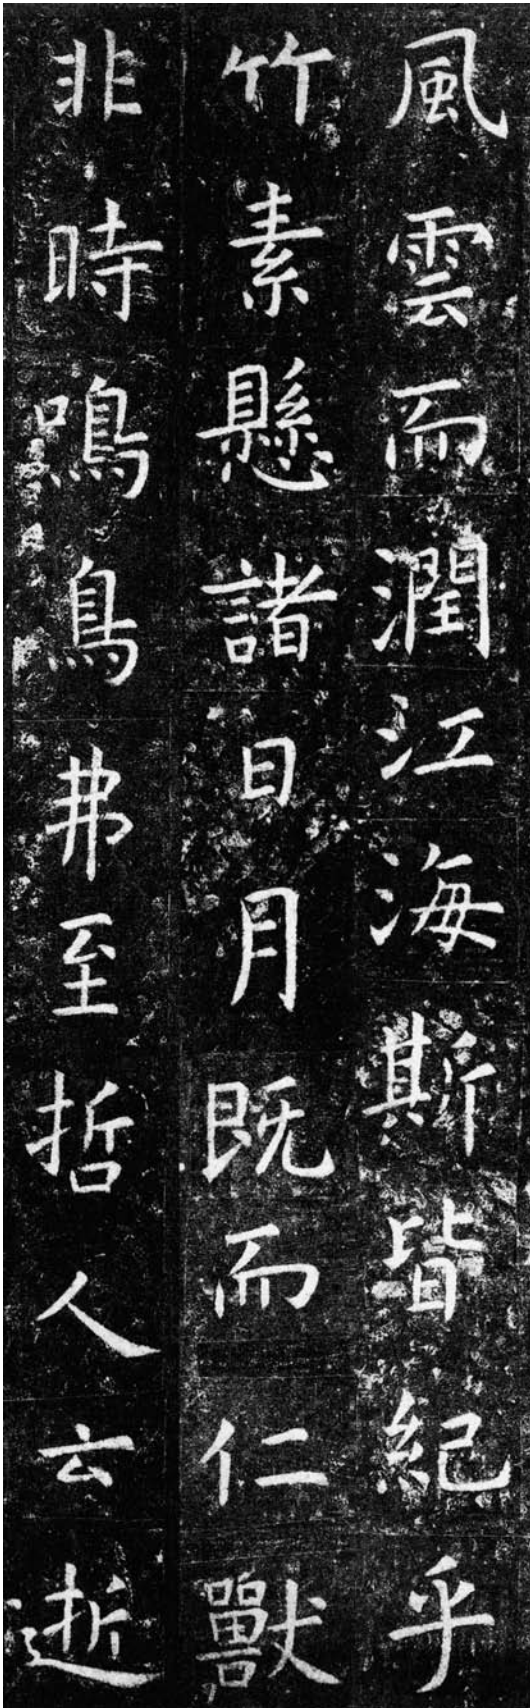 風雲而潤江海斯皆紀乎
竹素懸諸日月既而仁獸
非時鳴鳥弗至哲人云逝